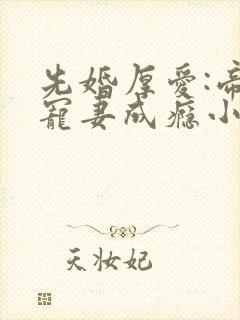 先婚厚爱:帝
宠妻成瘾小
天妆妃